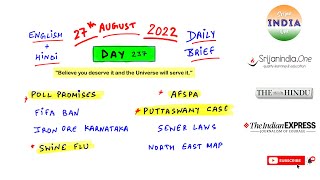 ENGLISH
+
HINDI
27th AUGUST 2022
DAILY
BRIEF
DAY 237
"Believe you deserve it and the Universe will serve it."
* POLL PROMISES
FIFA BAN
IRON ORE KARNATAKA
* SWINE FLU
* AFSPA
* PUTTASWAMY CASE
SEWER LAWS
NORTH EAST MAP
INDIA
Srijanindia.One
THE HINDU
The Indian EXPRESS
JOURNALISM OF COURAGE
SUBSCRIBE